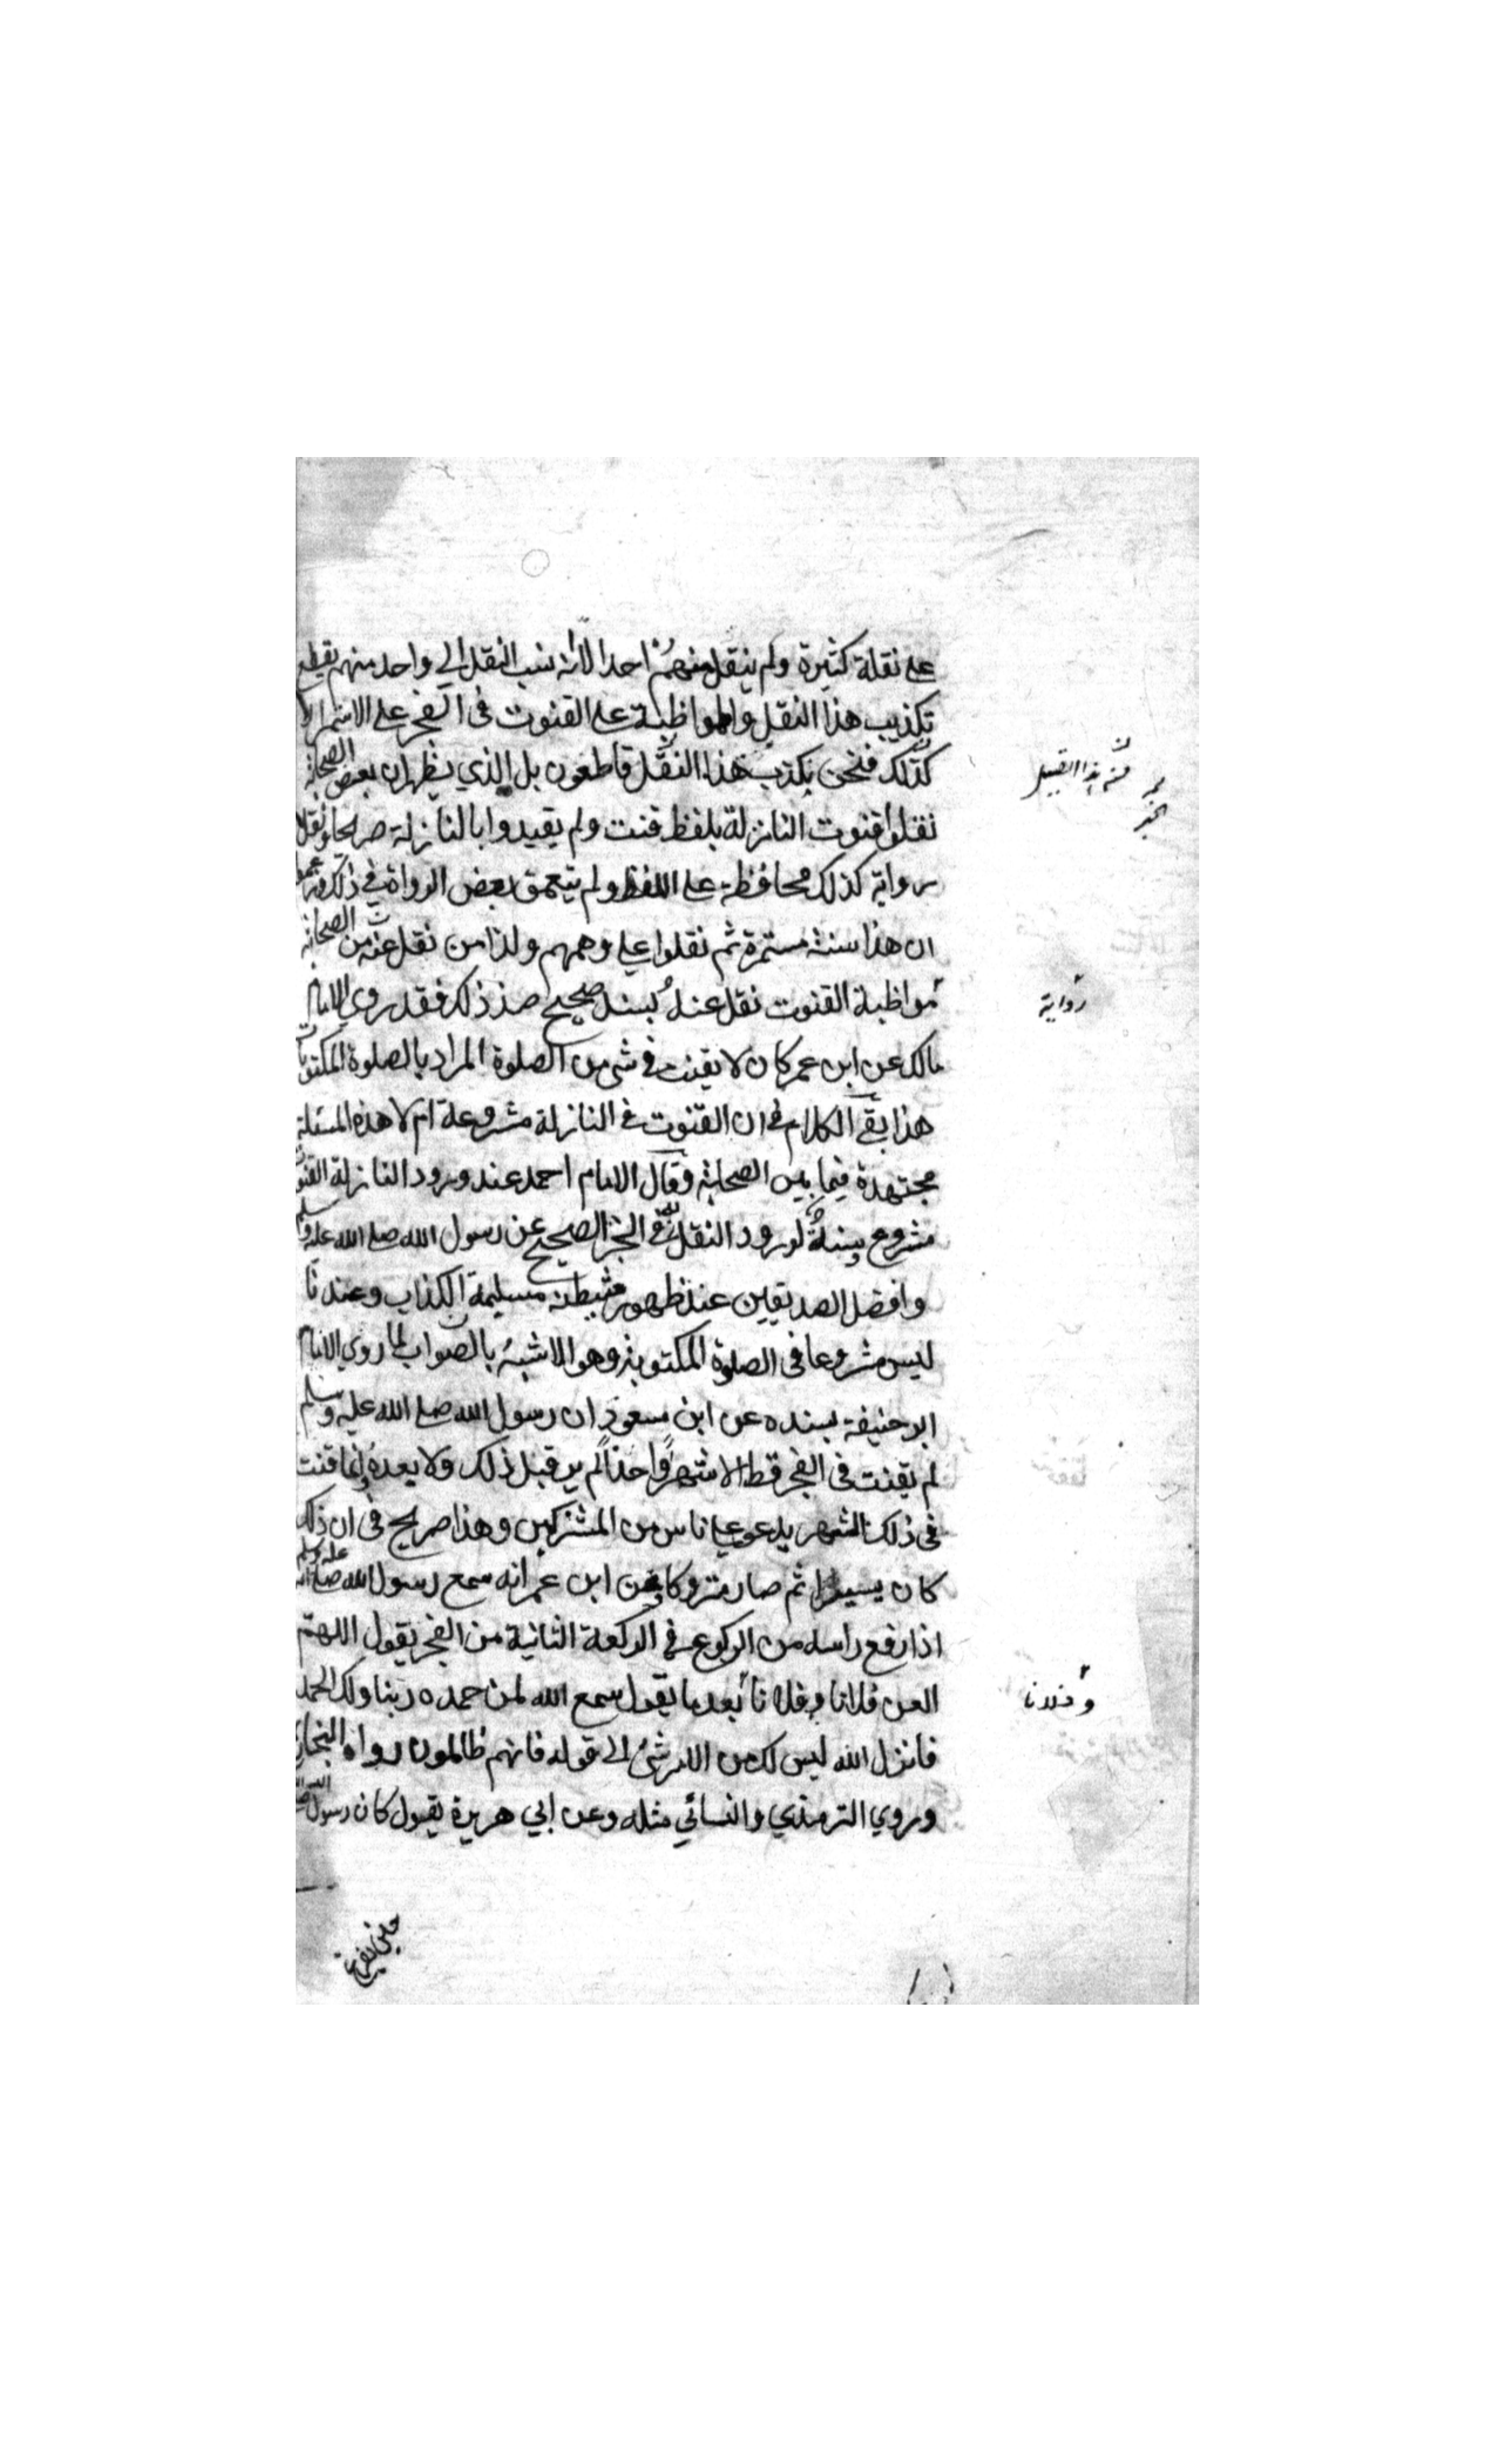 على نقلة كثيرة ولم ينقل منهم احد الا انه نسب النقل الى واحد منهم يقطع
تكذيب هذا النقل والمواظبة على القنوت فى الفجر على الاستمرار
كذلك فنحن بكذب هذا النقل قاطعون بل الذي يظهر ان بعض الصحابة
نقلوا قنوت النازلة بلفظ قنت ولم يقيدوا بالنازلة صريحا ونقل
برواية كذلك محافظة على اللفظ ولم يتعمق بعض الرواة في ذلك
ان هذا سنة مستمرة ثم نقلوا على وهمهم ولذا من نقل عنه من الصحابة
مواظبة القنوت نقل عنه بسند صحيح ضد ذلك فقد روي الامام
مالك عن ابن عمر كان لا يقنت في شي من الصلوة المراد بالصلوة المكتوبات
هذا بقي الكلام في ان القنوت في النازلة مشروعة ام لا هذه المسئلة
مجتهدة فيما بين الصحابة فقال الامام احمد عند ورود النازلة القنوت
مشروع وسنة لورود النقل في الخبر الصحيح عن رسول الله صلى الله عليه وسلم
وافضل الصديقين عند ظهور مسيلمة الكذاب وعندنا
ليس مشروعا فى الصلوة المكتوبة وهو الاشبه بالصواب لما روي الامام
ابو حنيفة بسنده عن ابن مسعود ان رسول الله صلى الله عليه وسلم
لم يقنت فى الفجر قط الا شهرا واحدا لم ير قبل ذلك ولا بعده وانما قنت
فى ذلك الشهر يدعو على ناس من المشركين وهذا صريح فى ان ذلك
كان يسيرا ثم صار متروكا وعن ابن عمر انه سمع رسول الله صلى الله عليه وسلم
اذا رفع راسه من الركوع في الركعة الثانية من الفجر يقول اللهم
العن فلانا وفلانا بعد ما يقول سمع الله لمن حمده ربنا ولك الحمد
فانزل الله ليس لك من الامر شئ الى قوله فانهم ظالمون رواه البخاري
وروي الترمذي والنسائي مثله وعن ابي هريرة يقول كان رسول الله
من هذا القبيل
رواية
وفلانا